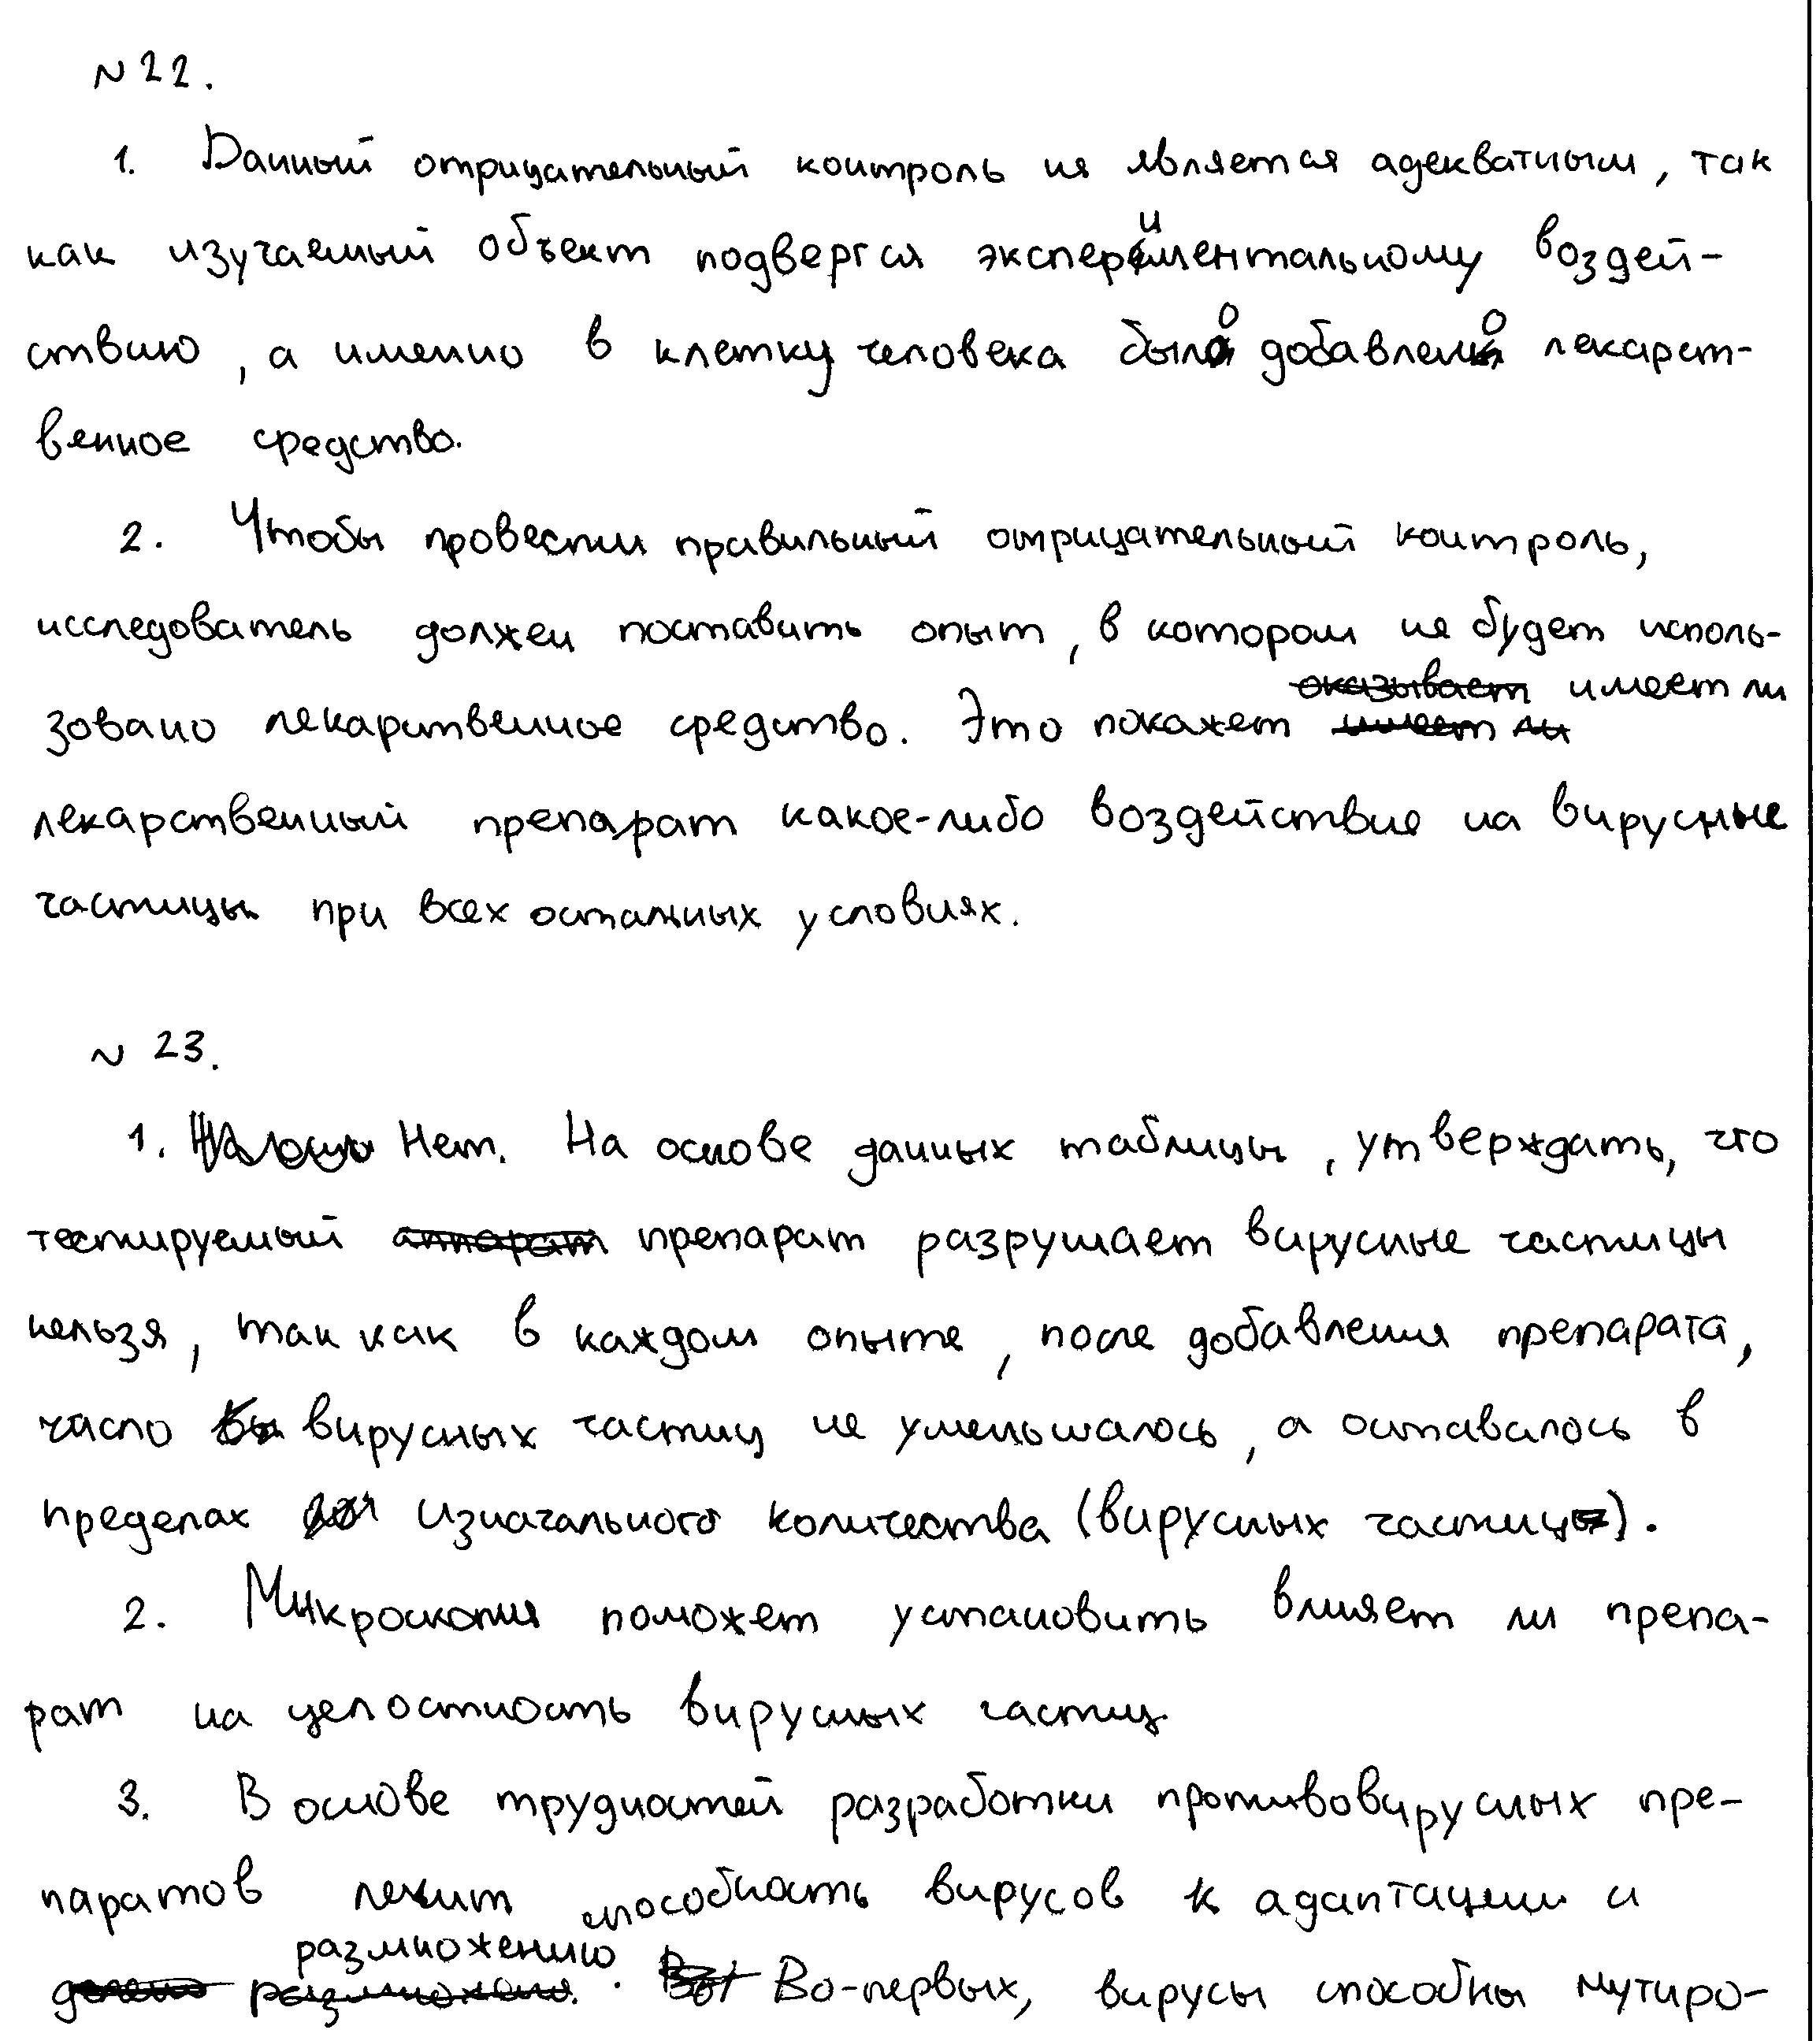 N 22.
1. Данный отрицательный контроль не является адекватным, так
как изучаемый объект подвергся экспериментальному воздей-
ствию, а именно в клетку человека было добавлено лекарст-
венное средство.
2. Чтобы провести правильный отрицательный контроль,
исследователь должен поставить опыт, в котором не будет исполь-
зовано лекарственное средство. Это покажет имеет ли
лекарственный препарат какое-либо воздействие на вирусные
частицы при всех остальных условиях.
N 23.
1. Нет. На основе данных таблицы, утверждать, что
тестируемый препарат разрушает вирусные частицы
нельзя, так как в каждом опыте, после добавления препарата,
число вирусных частиц не уменьшалось, а оставалось в
пределах изначального количества (вирусных частиц).
2. Микроскопия поможет установить влияет ли препа-
рат на целостность вирусных частиц
3. В основе трудностей разработки противовирусных пре-
паратов лежит способность вирусов к адаптации и
размножению. Во-первых, вирусы способны мутиро-